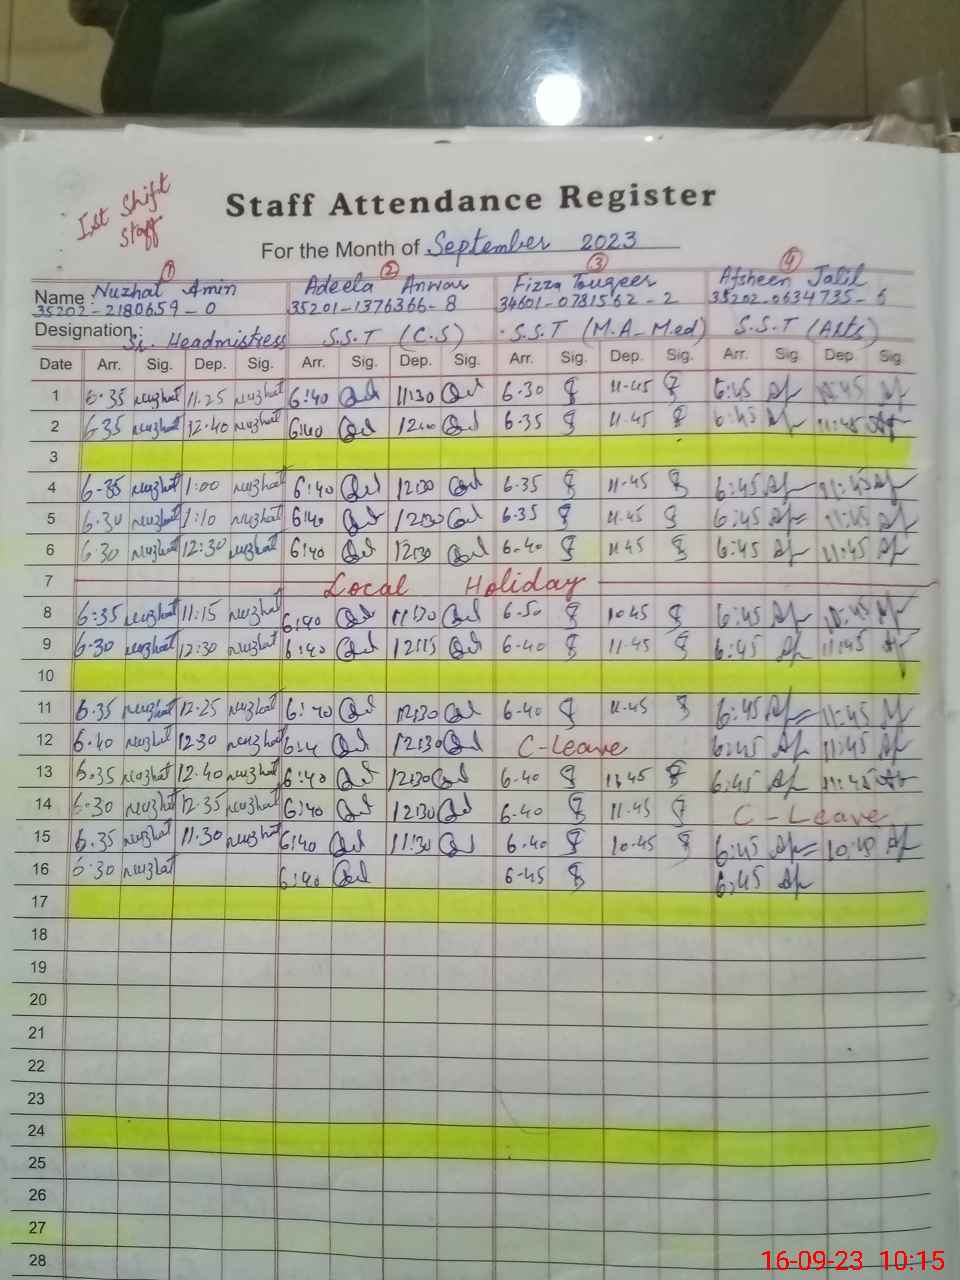 Ist Shift
Staff
Staff Attendance Register
For the Month of September 2023
1 2 3 4
Name: Nuzhat Amin Adeela Anwar Fizza Touqeer Afsheen Jalil
35202-2180659-0 35201-1376366-8 34601-0781562-2 35202-0634735-6
Designation: Sr. Headmistress S.S.T (C.S) S.S.T (M.A-Med) S.S.T (Arts)
Date Arr. Sig. Dep. Sig. Arr. Sig. Dep. Sig. Arr. Sig. Dep. Sig. Arr. Sig. Dep. Sig.
1 6.35 Nuzhat 11.25 Nuzhat 6:40 11:30 6.30 11.45 6:45
2 6.35 Nuzhat 12.40 Nuzhat 6:40 6.35 11.45 6:45 11:45
3
4 6.35 Nuzhat 1:00 Nuzhat 6:40 6.35 11.45 6:45 11:45
5 6.30 Nuzhat 1:10 Nuzhat 6:40 12:30 6.35 11.45 6:45 11:45
6 6.30 Nuzhat 12:30 Nuzhat 6:40 12:30 6.40 11.45 6:45 11:45
7 Local Holiday
8 6:35 Nuzhat 11:15 Nuzhat 6:40 11:30 6.50 10.45 6:45 10:45
9 6.30 Nuzhat 12:30 Nuzhat 6:40 12:15 6.40 11.45 6:45 11:45
10
11 6.35 Nuzhat 12.25 Nuzhat 6:40 12:30 6.40 11.45 6:45 11:45
12 6.40 Nuzhat 12.30 Nuzhat 12:30 C-Leave 6:45 11:45
13 6.35 Nuzhat 12.40 Nuzhat 6:40 12:30 6.40 11.45 6:45 11:45
14 6.30 Nuzhat 12.35 Nuzhat 6:40 12:30 6.40 11.45 C-Leave
15 6.35 Nuzhat 11.30 Nuzhat 6:40 11:30 6.40 10.45 6:45 10:45
16 6.30 Nuzhat 6:40 6.45 6:45
17
18
19
20
21
22
23
24
25
26
27
28
16-09-23 10:15